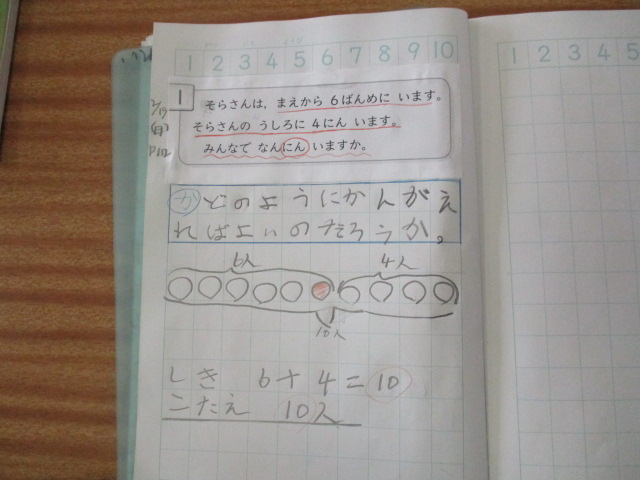 1 2 3 4 5 6 7 8 9 10
1 2 3 4 5
1
そらさんは、まえから 6ばんめに います。
そらさんの うしろに 4にん います。
みんなで なんにん いますか。
か どのようにかんがえ
ればよいのだろうか。
6人 4人
10人
しき 6+4=10
こたえ 10人